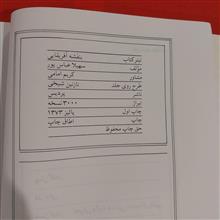 تیتر کتاب بنفشه آفریقایی
مؤلف سهیلا عباس پور
مشاور کریم امامی
طرح روی جلد نازنین شیخی
ناشر پردیس
تیراژ ۳۰۰۰ نسخه
چاپ اول پائیز ۱۳۷۳
چاپ اطاق چاپ
حق چاپ محفوظ